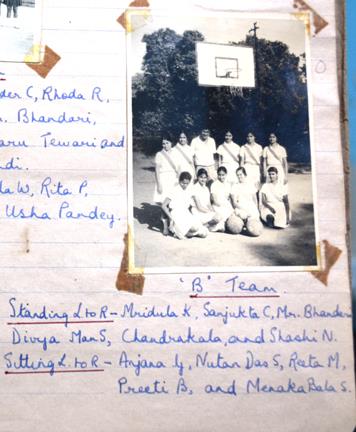 der C, Rhoda R,
. Bhandari,
aru Tewari and
ndi.
la W, Rita P,
Usha Pandey.
'B' Team.
Standing L to R - Mridula K, Sanjukta C, Mr. Bhandari
Divya Man S, Chandrakala, and Shashi N.
Sitting L. to R - Anjana Y, Nutan Das S, Reeta M,
Preeti B, and Menaka Bala S.